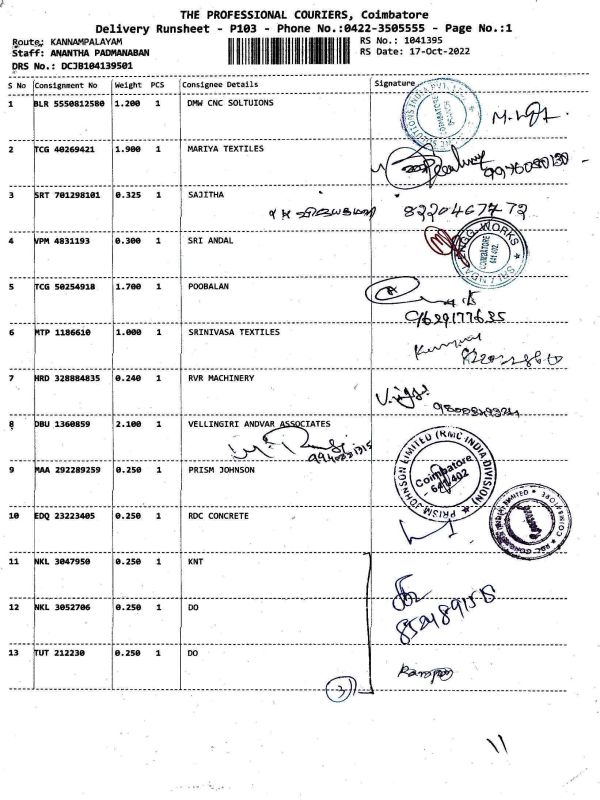 THE PROFESSIONAL COURIERS, Coimbatore
Delivery Runsheet - P103 - Phone No.:0422-3505555 - Page No.:1
Route: KANNAMPALAYAM
RS No.: 1041395
Staff: ANANTHA PADMANABAN
RS Date: 17-Oct-2022
DRS No.: DCJB104139501
S No Consignment No Weight PCS Consignee Details Signature
1 BLR 5550812580 1.200 1 DMW CNC SOLTUIONS
2 TCG 40269421 1.900 1 MARIYA TEXTILES
3 SRT 701298101 0.325 1 SAJITHA
8220467772
4 VPM 4831193 0.300 1 SRI ANDAL
SRI ANDAL ENGG WORKS COIMBATORE 641 402
5 TCG 50254918 1.700 1 POOBALAN
9629177635
6 MTP 1186610 1.000 1 SRINIVASA TEXTILES
7 HRD 328884835 0.240 1 RVR MACHINERY
8 DBU 1360859 2.100 1 VELLINGIRI ANDVAR ASSOCIATES
9 MAA 292289259 0.250 1 PRISM JOHNSON
PRISM JOHNSON LIMITED (RMC INDIA DIVISION) Coimbatore - 641 402
10 EDQ 23223405 0.250 1 RDC CONCRETE
11 NKL 3047950 0.250 1 KNT
12 NKL 3052706 0.250 1 DO
13 TUT 212230 0.250 1 DO
3
11